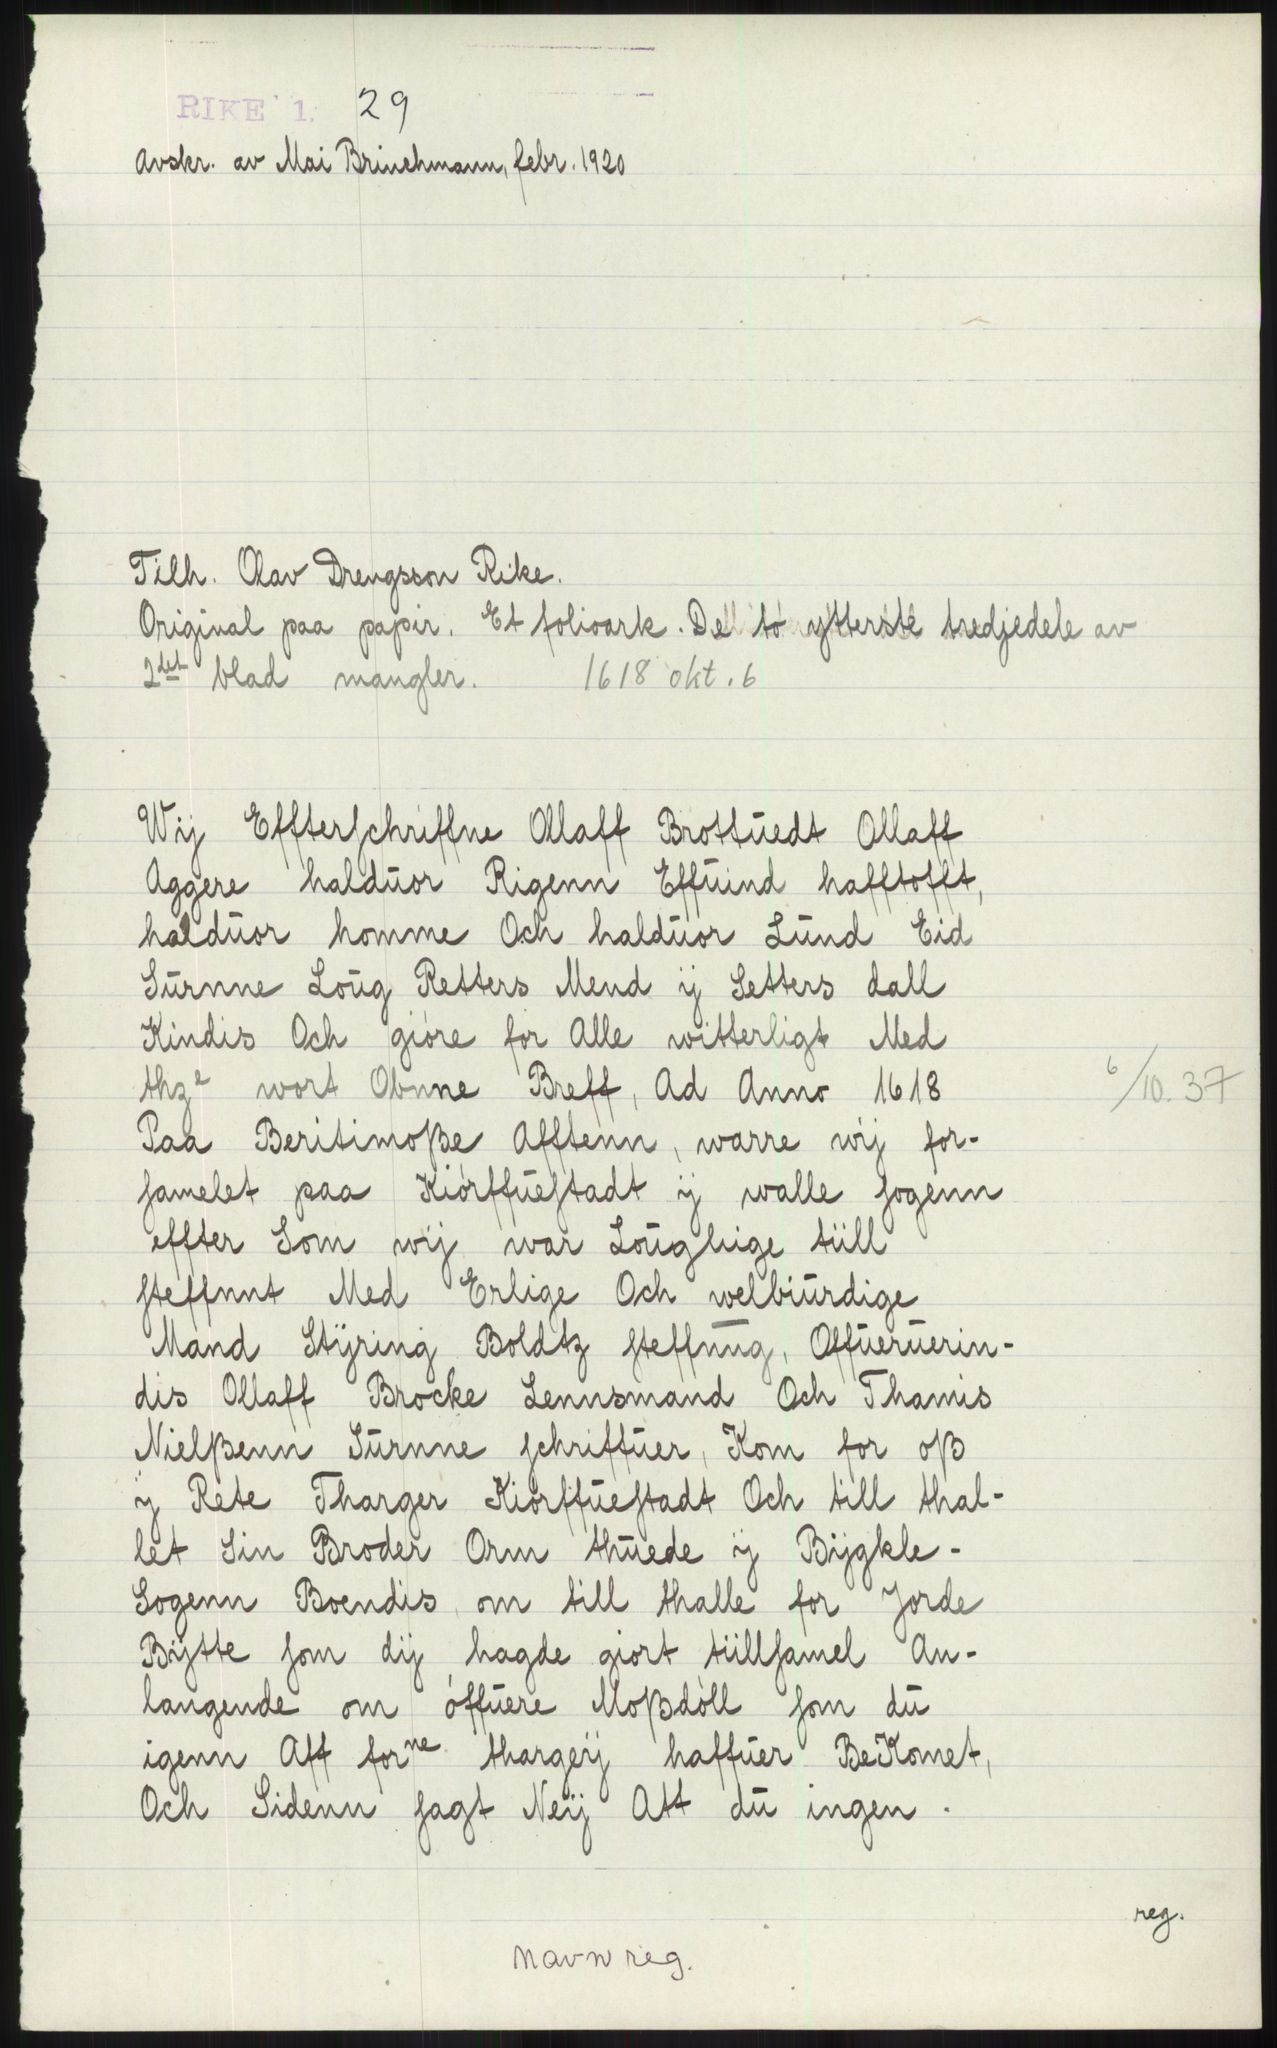 RIKE 1. 29
Avskr. av Mai Brinchmann, febr. 1920
Tilh. Olav Drengsson Rike.
Original paa papir. Et folioark. De to ytterste tredjedele av
2det blad mangler. 1618 okt. 6
Wij Effterschriffne Ollaff Brottuedt Ollaff
Aggere halduor Rigenn Effuind hafftofft,
halduor homme Och halduor Lund Eid
Surnne Loug Retters Mend ij Setters dall
Kindis Och giøre for Alle witterligt Med
thz wort Obnne Breff, Ad Anno 1618
6/10. 37
Paa Beritimoße Afftenn, warre wij for-
samelet paa Kiørffuestadt ij walle sogenn
effter Som wij war Louglige tiill
steffnnt Med Erlige Och welbiurdige
Mand Stÿring Boldtz steffnug, Offueruerin-
dis Ollaff Brocke Lennsmand Och Thamis
Nielßenn Surnne schriffuer, Kom for oß
ij Rete Tharger Kiørffuestadt Och till thal-
let Sin Broder Orm thuede ij Bijgkle-
Sogenn Boendis, om till thalle for Jorde
Bijtte som dij hagde giort tiillsamel An-
langende om øffuere Moßdøll som du
igenn Aff forne thargeij haffuer BeKomet,
Och Sidenn sagt Neij Att du ingen .
reg.
Navnreg.